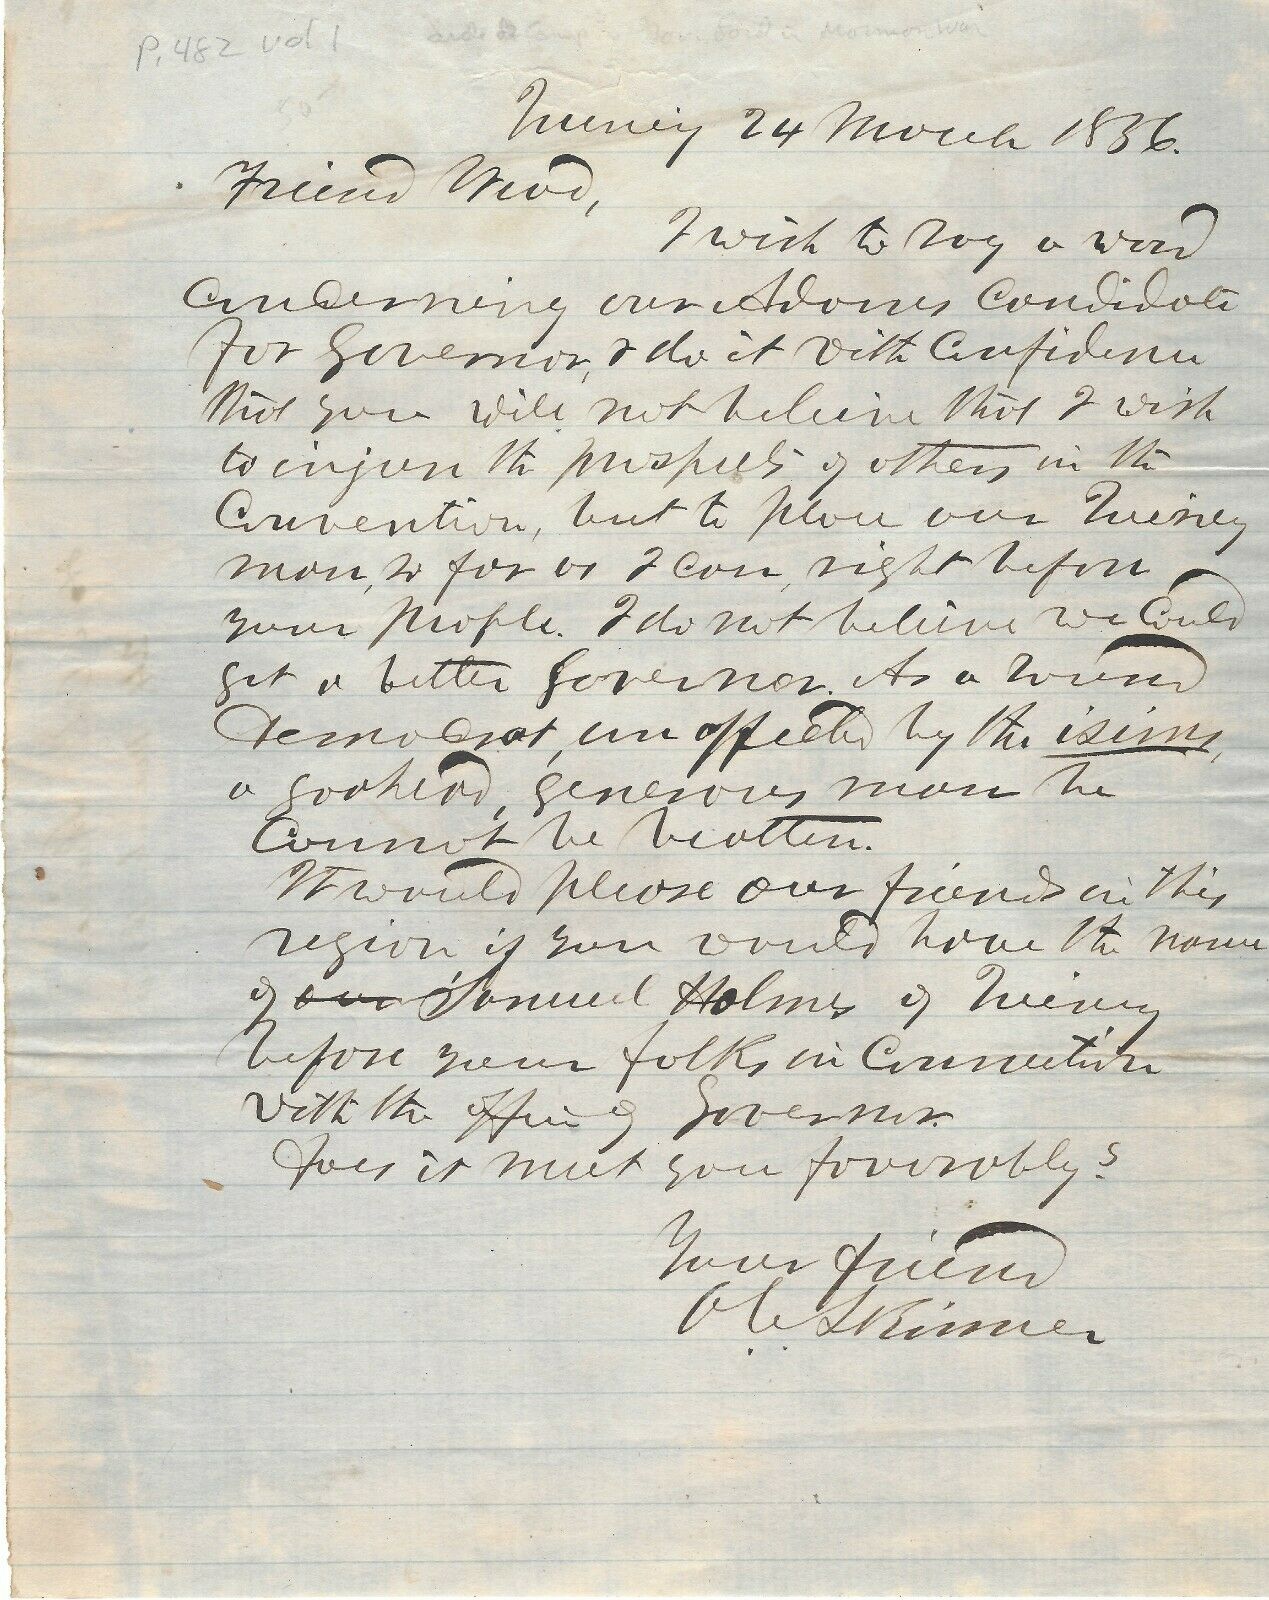 P. 482 vol 1
Quincy 24 March 1856.
Friend Wood,
I wish to say a word
concerning our Adams Candidate
for Governor, & do it with Confidence
that you will not believe that I wish
to injure the prospects of others in the
Convention, but to place our Quincy
man, so far as I can, right before
your people. I do not believe we Could
get a better Governor. As a sound
Democrat, un affected by the isims,
a goohead, generous man he
Cannot be beatten.
It would please our friends in this
region if you would have the name
of our Samuel Holmes of Quincy
before your folks in Connection
with the office of Governor.
Does it meet you favorably?
Your friend
O. C. Skinner